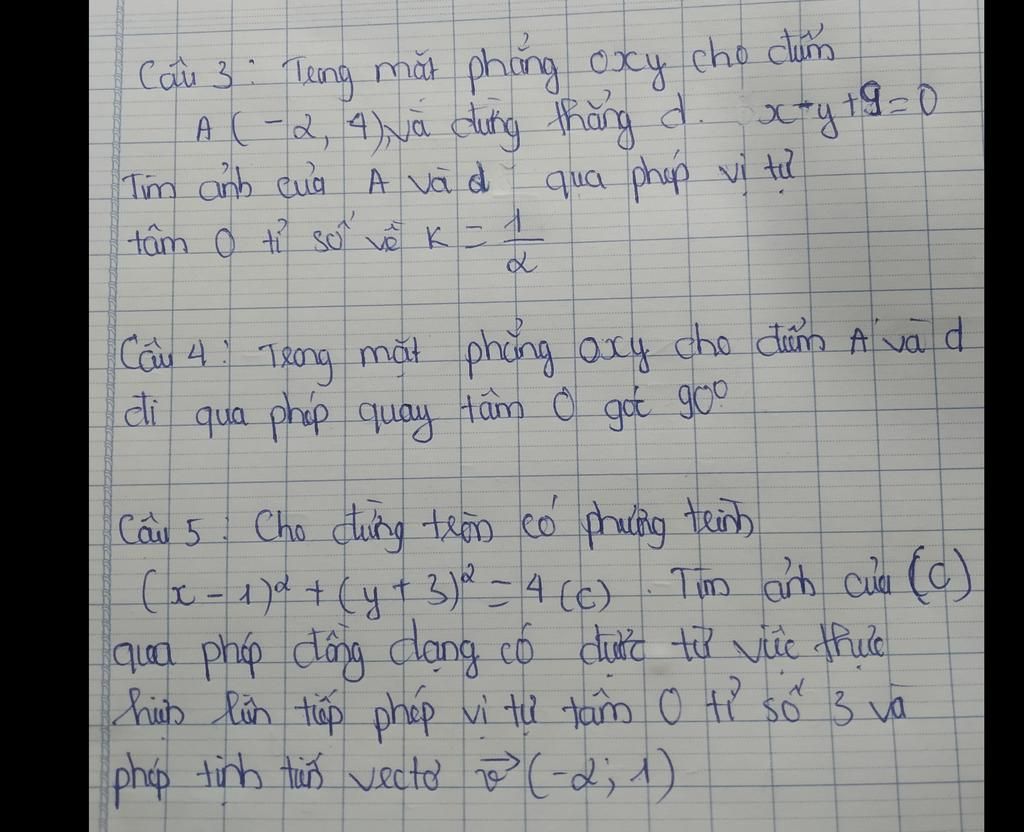 Câu 3: Trong mặt phẳng oxy cho điểm
A (-2, 4), và đường thẳng d. x+y+9=0
Tìm ảnh của A và d qua phép vị tự
tâm O tỉ số vê K = 1/2
Câu 4: Trong mặt phẳng oxy cho điểm A và d
đi qua phép quay tâm O góc 90°
Câu 5: Cho đường tròn có phương trình
(x-1)² + (y+3)² = 4 (C). Tìm ảnh của (C)
qua phép đồng dạng có được từ việc thực
hiện liên tiếp phép vị tự tâm O tỉ số 3 và
phép tịnh tiến vectơ v→ (-2; 1)